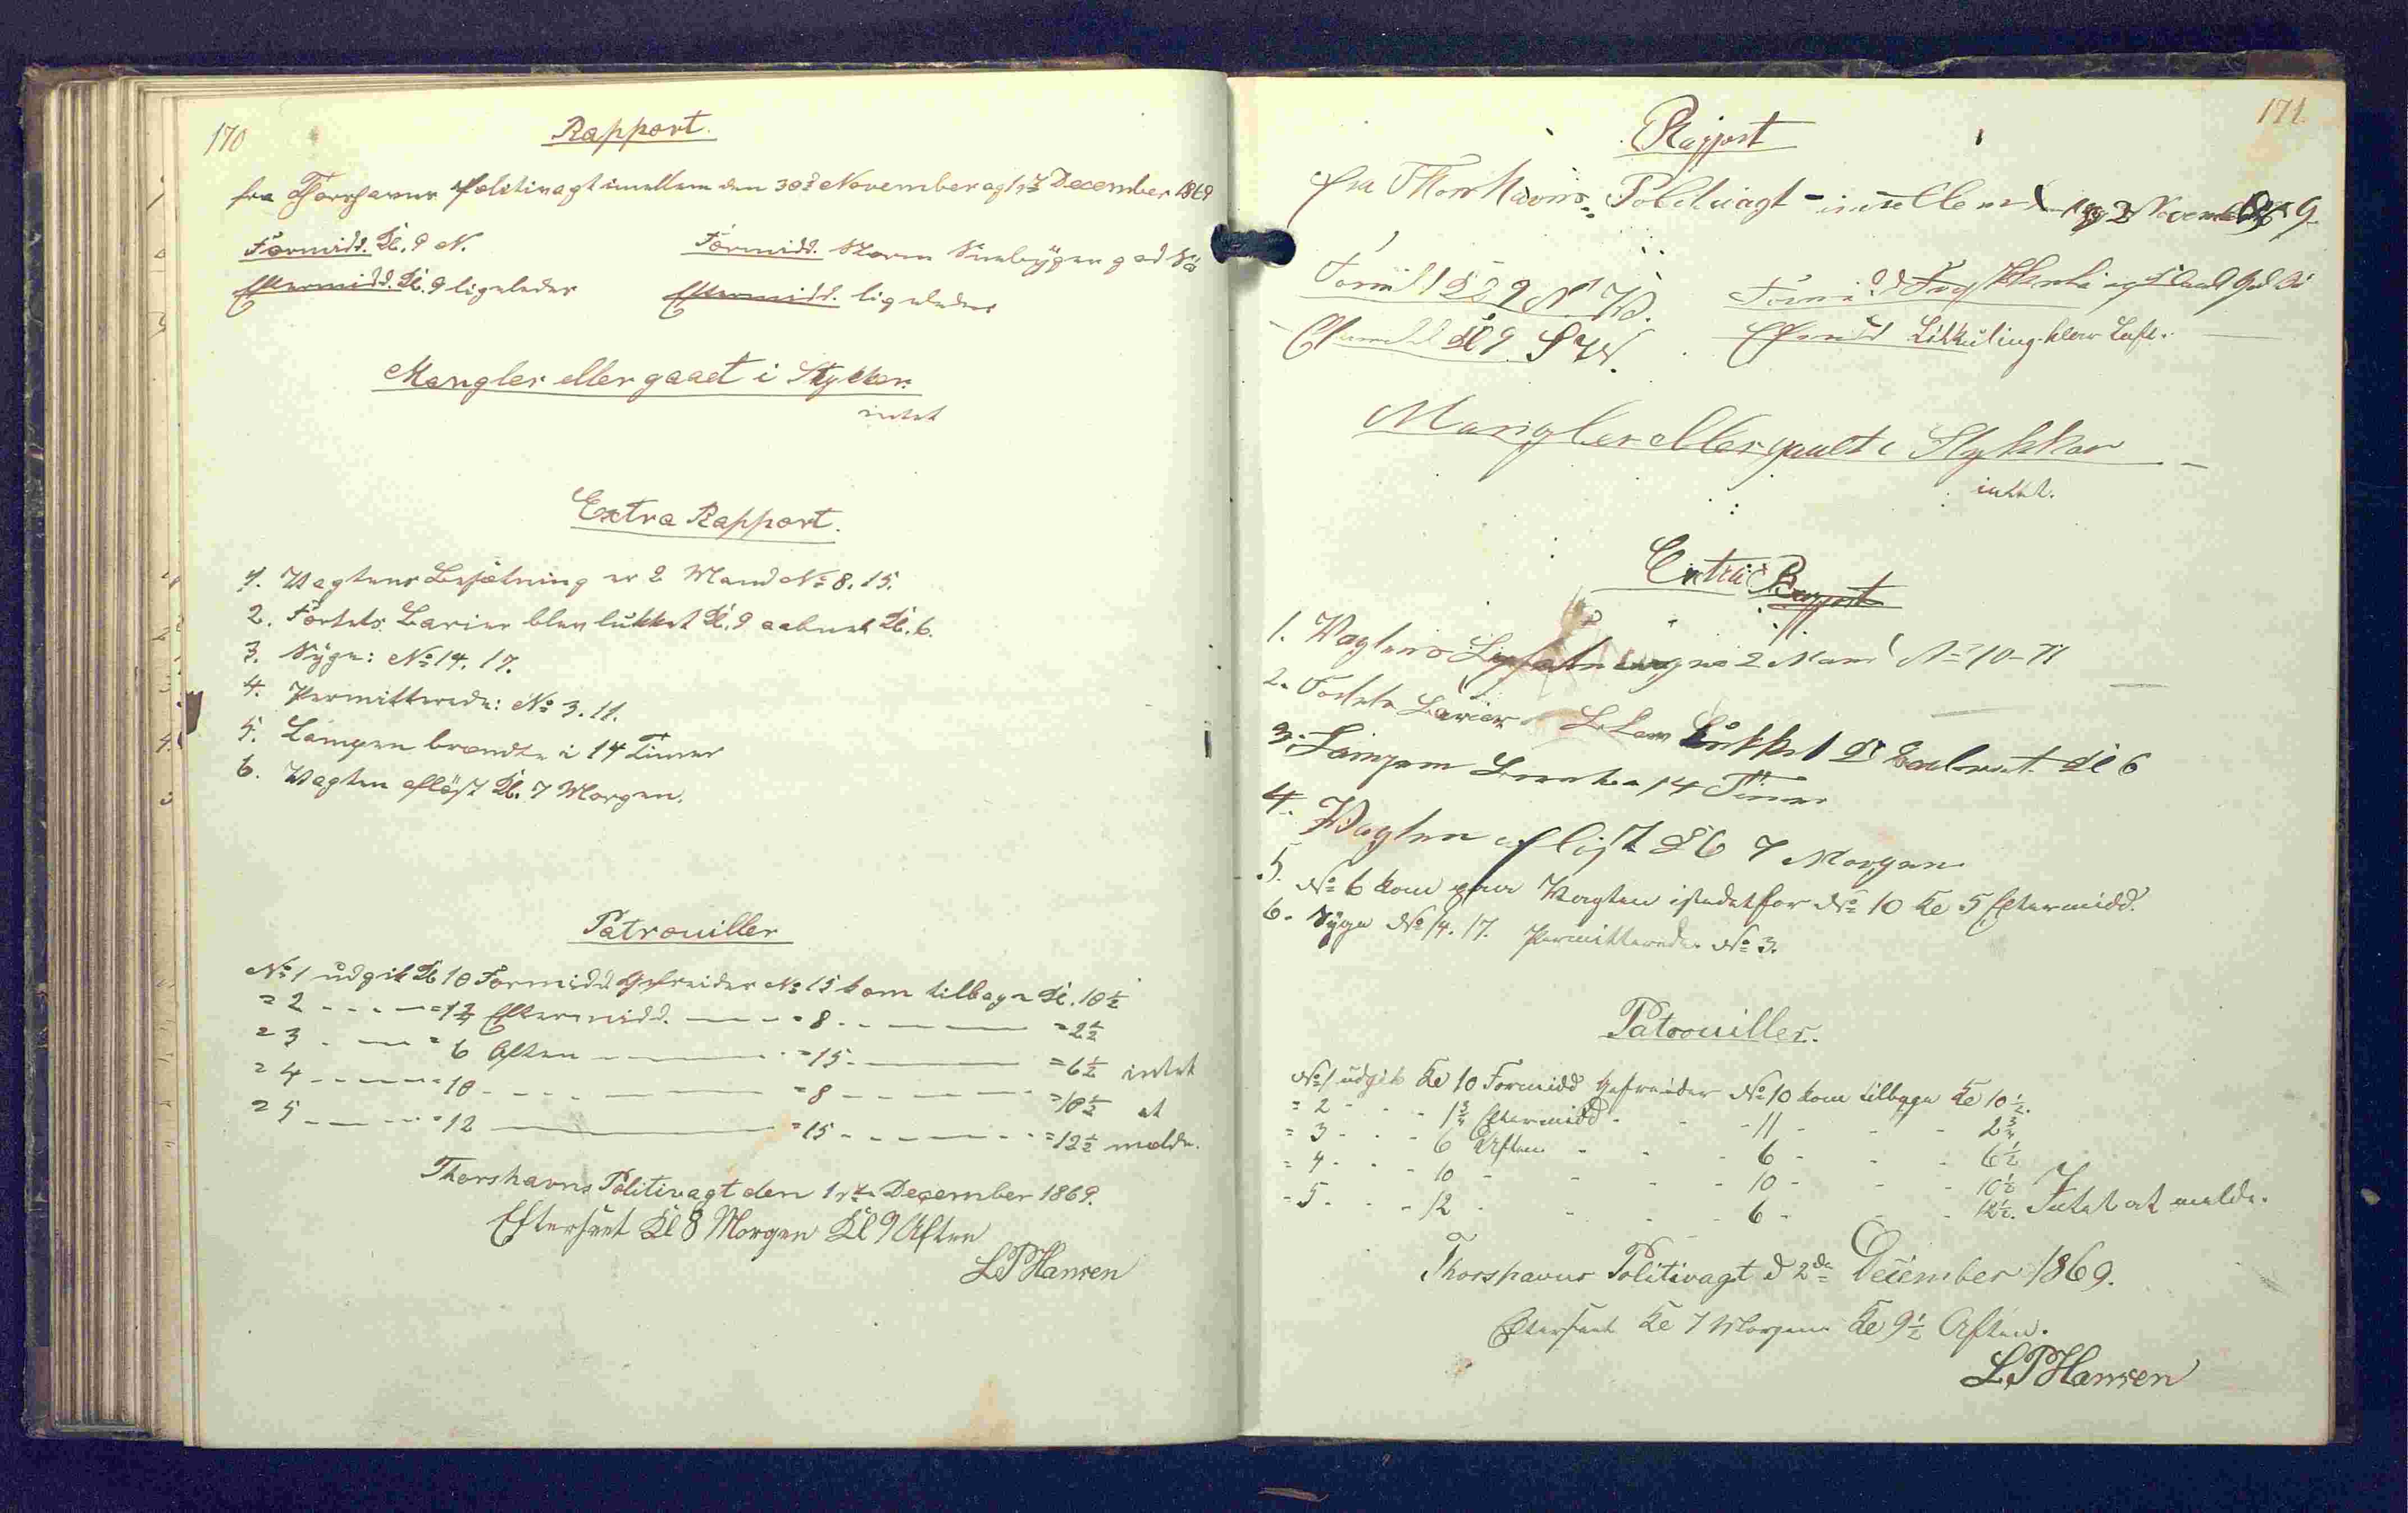 170
Rapport.
fra Thorshavns Politivagt imellem den 30de November og 1ste December 1869
Formidd. Kl. 9 N.
Formidd. Storm Sneebyger god Sö
Eftermidd. Kl. 9 ligeledes
Eftermidd. ligeledes
Mangler eller gaaet i Stykker.
intet
Extra Rapport.
1. Vagtens Besætning er 2 Mand No 8. 15.
2. Fortets Barier blev lukket Kl. 9 aabnet Kl. 6.
3. Syge: No 14. 17.
4. Permitterede: No 3. 11.
5. Lampen brændte i 14 Timer
6. Vagten aflöst Kl. 7 Morgen.
Patrouiller
No 1 udgik Kl 10 Formidd Gefreider No 15 kom tilbage Kl. 10½
= 2 - - - - = 1¾ Eftermidd. - - - = 8 - - - - = 2½
= 3 - - - = 6 Aften - - - = 15 - - - = 6½ intet
= 4 - - - - = 10 - - - - = 8 - - - - = 10½ at
= 5 - - - - = 12 - - - = 15 - - - - = 12½ melde.
Thorshavns Politivagt den 1ste December 1869.
Efterseet Kl 8 Morgen Kl 9 Aften
LPHansen
171.
Rapport
fra Thorshavns Politivagt imellem 1 og 2 November 9
Formidd Kl 9 N.W.
Formidd god Sö
Eftermidd Kl 9 S W.
Eftermidd Lükkuling klar Luft.
Mangler eller gaaet i Stykker
intet.
Extra Rapport
1. Vagtens Besætning er 2 Mand No 10-11
2. Fortets Barier blev lukket Kl aabnet Kl 6
3. Lampen brændte 14 Timer
4. Vagten aflöst Kl 7 Morgen
5. No 6 kom paa Vagten istedetfor No 10 Kl 5 Eftermidd.
6. Syge No 14. 17. Permitterede No 3.
Patrouiller.
No 1 udgik Kl 10 Formidd Gefreider No 10 kom tilbage Kl 10½.
= 2 - - - 1¾ Eftermidd - - - 11 - - - 2¾
= 3 - - - 6 Aften - - - 6 - - - 6½
= 4 - - - 10 - - - 10 - - - 10½
= 5 - - - 12 - - - 6 - - - 12½. Intet at melde.
Thorshavns Politivagt d 2de December 1869.
Efterseet Kl 7 Morgen Kl 9½ Aften.
LPHansen